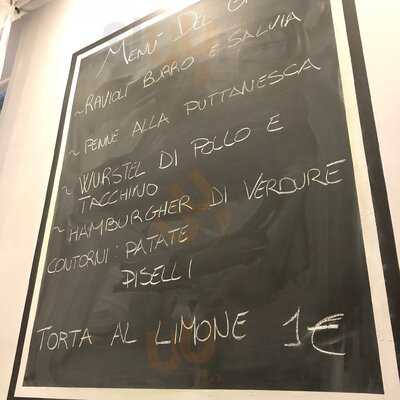 MENÚ DEL
~ RAVIOLI BURRO E SALVIA
~ PENNE ALLA PUTTANESCA
~ WURSTEL DI POLLO E
TACCHINO
~ HAMBURGHER DI VERDURE
CONTORNI: PATATE
PISELLI
TORTA AL LIMONE 1€